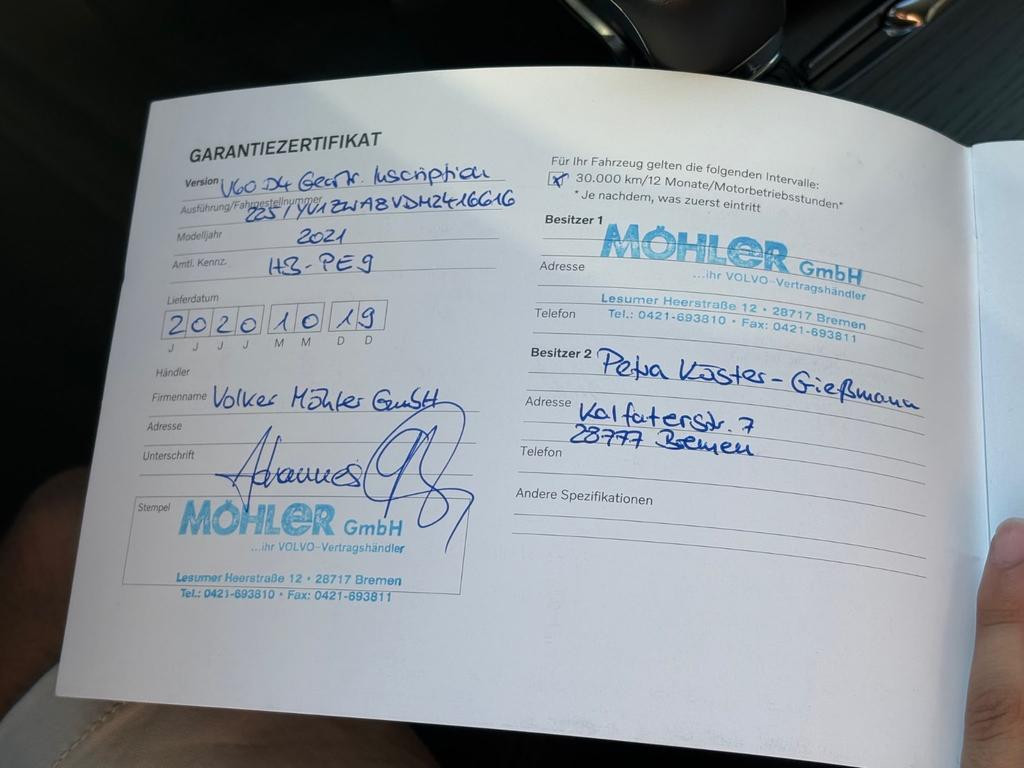 GARANTIEZERTIFIKAT
Version V60 D4 Geartr. Inscription
Ausführung/Fahrgestellnummer
225 / YV1ZWA8VDM2416616
Modelljahr 2021
Amtl. Kennz. HB-PE9
Lieferdatum
2020 10 19
J J J J M M D D
Händler
Firmenname Volker Möhler GmbH
Adresse
Unterschrift
Stempel
MÖHLER GmbH
...ihr VOLVO-Vertragshändler
Lesumer Heerstraße 12 • 28717 Bremen
Tel.: 0421-693810 • Fax: 0421-693811
Für Ihr Fahrzeug gelten die folgenden Intervalle:
30.000 km/12 Monate/Motorbetriebsstunden*
*Je nachdem, was zuerst eintritt
Besitzer 1
MÖHLER GmbH
...ihr VOLVO-Vertragshändler
Adresse
Lesumer Heerstraße 12 • 28717 Bremen
Telefon
Tel.: 0421-693810 • Fax: 0421-693811
Besitzer 2 Petra Köster-Gießmann
Adresse Kalfaterstr. 7
28777 Bremen
Telefon
Andere Spezifikationen